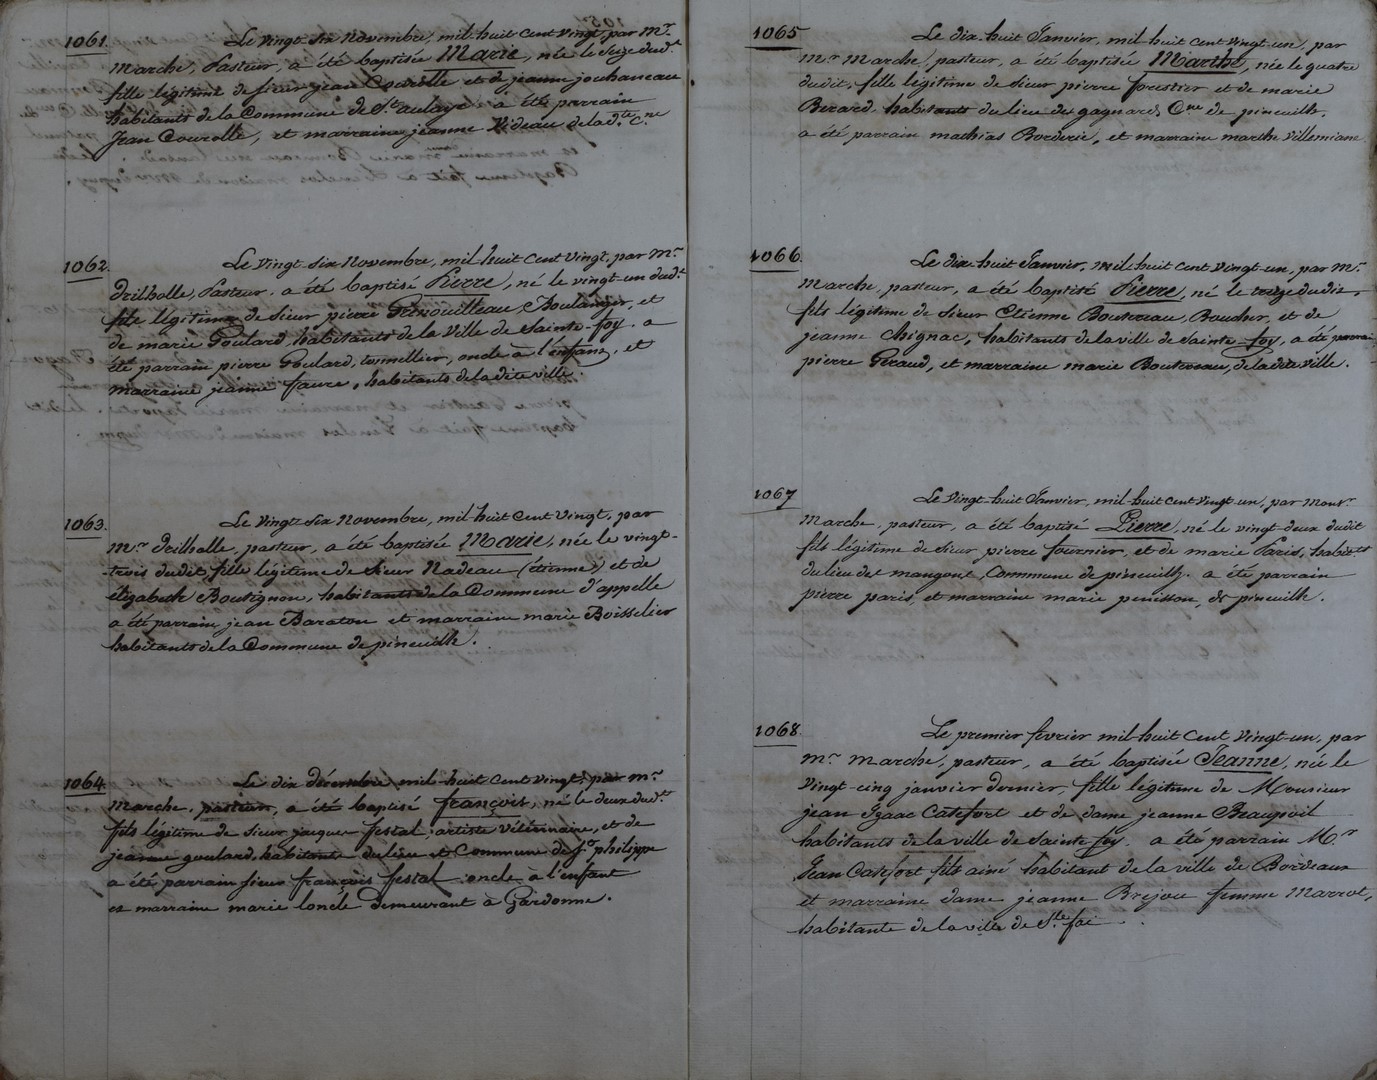 1061.
Le Vingt-Six Novembre, mil-huit Cent Vingt, par Mr.
Marche, Pasteur, a été baptisée Marie, née le Seize dudt.
fille légitime de Sieur jean Courolle et de jeanne jouhaneau
habitants de la Commune de St. aulaye. a été parrain
Jean Courolle, et marraine jeanne Videau de lad.te C.ne
1062.
Le Vingt-Six Novembre, mil-huit Cent Vingt, par Mr.
Drilholle, Pasteur, a été baptisé Pierre, né le vingt-un dudt.
fils légitime de Sieur pierre Grenouilleau, Boulanger, et
de marie Goulard, habitants de la Ville de Sainte-foy. a
été parrain pierre Goulard, tonnellier, oncle à l'enfant, et
marraine jeanne faure, habitants de la dite ville.
1063.
Le Vingt-Six Novembre, mil-huit Cent Vingt, par
mr. Drilholle, pasteur, a été baptisée Marie, née le vingt-
-trois dudit, fille légitime de Sieur Nadeau (étienne) et de
élizabeth Boutignon, habitants de la Commune d'appelle
a été parrain jean Baraton et marraine marie Boisselier
habitants de la Commune de pineuilh.
1064.
Le dix décembre mil-huit Cent Vingt, par mr.
marche, pasteur, a été baptisé françois, né le deux dudt.
fils légitime de Sieur jacques festal artiste vétérinaire, et de
jeanne goulard, habitants du lieu et Commune de St. philippe
a été parrain Sieur françois festal oncle a l'enfant
et marraine marie loncle demeurant à Gardonne.
1065
Le dix-huit Janvier, mil-huit Cent Vingt-un, par
Mr. Marche, pasteur, a été baptisée Marthe, née le quatre
dudit, fille légitime de Sieur pierre forestier et de marie
Berard habitants du lieu des gagnards Cne de pineuilh.
a été parrain mathias Borderie, et marraine marthe Villemiane
1066.
Le dix-huit Janvier, mil-huit Cent Vingt-un, par Mr.
Marche, pasteur, a été baptisé Pierre, né le treize dudit,
fils légitime de Sieur Etienne Boutereau, Boucher, et de
jeanne Chignac, habitants de la ville de Sainte-foy, a été parrain
pierre Geraud, et marraine marie Boutereau, de la dite ville.
1067
Le Vingt-huit Janvier, mil-huit Cent Vingt-un, par Monsr.
Marche, pasteur, a été baptisé Pierre, né le vingt-deux dudit
fils légitime de Sieur pierre fournier, et de marie Paris, habitts
du lieu des mangons, Commune de pineuilh. a été parrain
pierre paris, et marraine marie penisson, de pineuilh.
1068.
Le premier février mil-huit Cent Vingt-un, par
mr. marche, pasteur, a été baptisée Jeanne, née le
Vingt-cinq janvier dernier, fille légitime de Monsieur
jean Isaac Catefort et de dame jeanne Beaupoil
habitants de la ville de Sainte foy. a été parrain Mr.
Jean Catefort fils ainé habitant de la ville de Bordeaux
et marraine dame jeanne Brejou femme Marrot,
habitante de la ville de Ste. foi